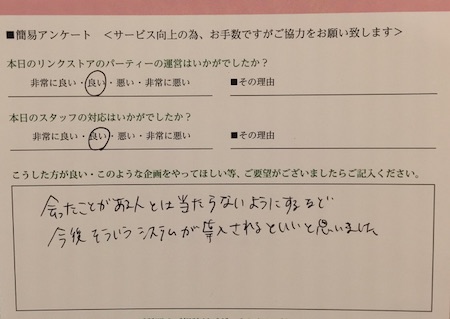 ■簡易アンケート ＜サービス向上の為、お手数ですがご協力をお願い致します＞
本日のリンクストアのパーティーの運営はいかがでしたか？
非常に良い・良い・悪い・非常に悪い ■その理由
本日のスタッフの対応はいかがでしたか？
非常に良い・良い・悪い・非常に悪い ■その理由
こうした方が良い・このような企画をやってほしい等、ご要望がございましたらご記入ください。
会ったことがある人とは当たらないようにするなど
今後そういうシステムが導入されるといいと思いました